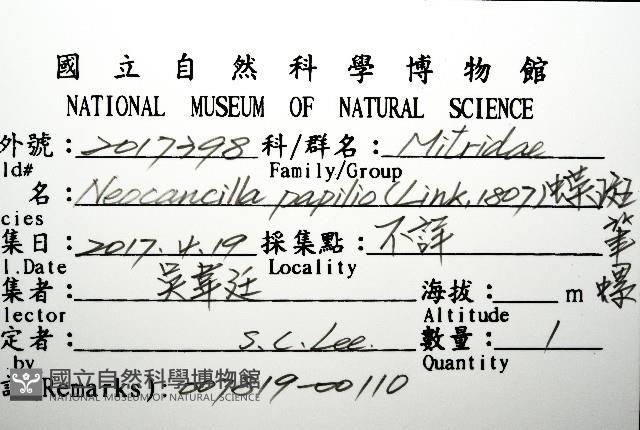 國立自然科學博物館
NATIONAL MUSEUM OF NATURAL SCIENCE
外號：2017398 科/群名：Mitridae
ld# Family/Group
名：Neocancilla papilio (Link, 1807) 蝶斑筆螺
cies
集日：2017.4.19 採集點：不詳
l.Date Locality
集者：吳韋廷 海拔： m
lector Altitude
定者：S.C.Lee. 數量：1
by Quantity
Remarks):
國立自然科學博物館
NATIONAL MUSEUM OF NATURAL SCIENCE